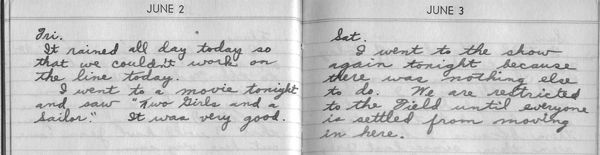 JUNE 2
Fri.
It rained all day today so
that we couldn't work on
the line today.
I went to a movie tonight
and saw "Two Girls and a
Sailor." It was very good.
JUNE 3
Sat.
I went to the show
again tonight because
there was nothing else
to do. We are restricted
to the Field until everyone
is settled from moving
in here.